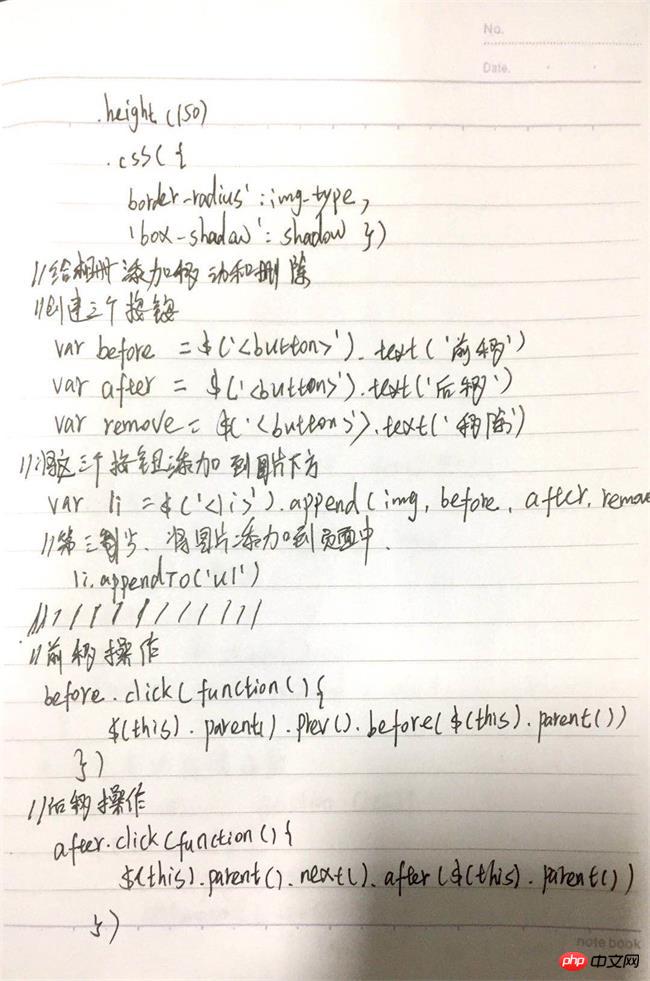 No.
Date.
.height(150)
.css({
border-radius':img-type,
'box-shadow':shadow })
//给相册添加移动和删除
//创建三个按钮
var before = $('<button>').text('前移')
var after = $('<button>').text('后移')
var remove = $('<button>').text('移除')
//将这三个按钮添加到图片下方
var li = $('<li>').append(img, before, after, remove
//第三步、将图片添加到页面中.
li.appendTo('ul')
////////////
//前移操作
before.click(function(){
$(this).parent().prev().before($(this).parent())
})
//后移操作
after.click(function(){
$(this).parent().next().after($(this).parent())
})
note book
php 中文网